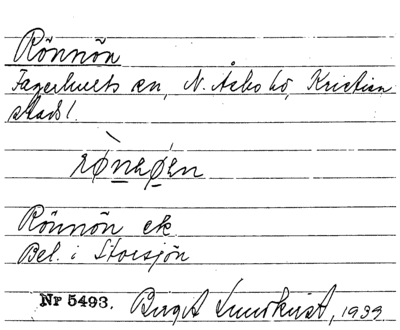 Rönnön
Fagerhults sn, N. Åsbo hd, Kristian
stads l.
Rönnön ek
Bel. i Storsjön
Nr 5493. Birgit Lundkvist, 1939